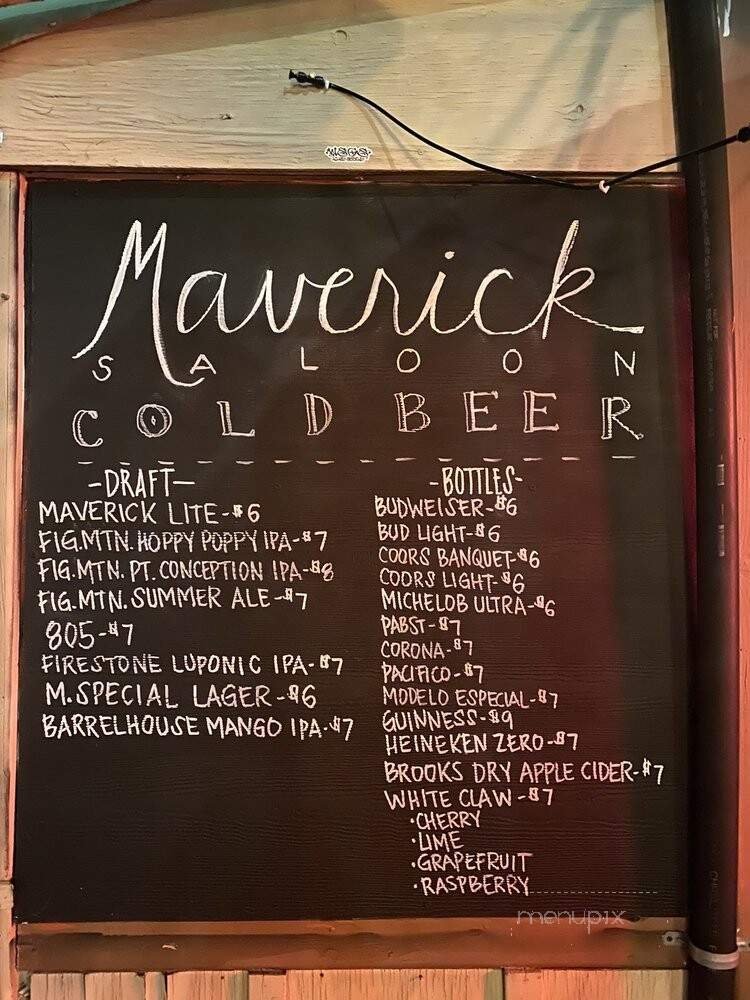 Maverick
SALOON
COLD BEER
-DRAFT-
MAVERICK LITE-$6
FIG.MTN. HOPPY POPPY IPA-$7
FIG.MTN. PT. CONCEPTION IPA-$8
FIG.MTN. SUMMER ALE-$7
805-$7
FIRESTONE LUPONIC IPA-$7
M.SPECIAL LAGER-$6
BARRELHOUSE MANGO IPA-$7
-BOTTLES-
BUDWEISER-$6
BUD LIGHT-$6
COORS BANQUET-$6
COORS LIGHT-$6
MICHELOB ULTRA-$6
PABST-$7
CORONA-$7
PACIFICO-$7
MODELO ESPECIAL-$7
GUINNESS-$9
HEINEKEN ZERO-$7
BROOKS DRY APPLE CIDER-$7
WHITE CLAW-$7
·CHERRY
·LIME
·GRAPEFRUIT
·RASPBERRY
menupix